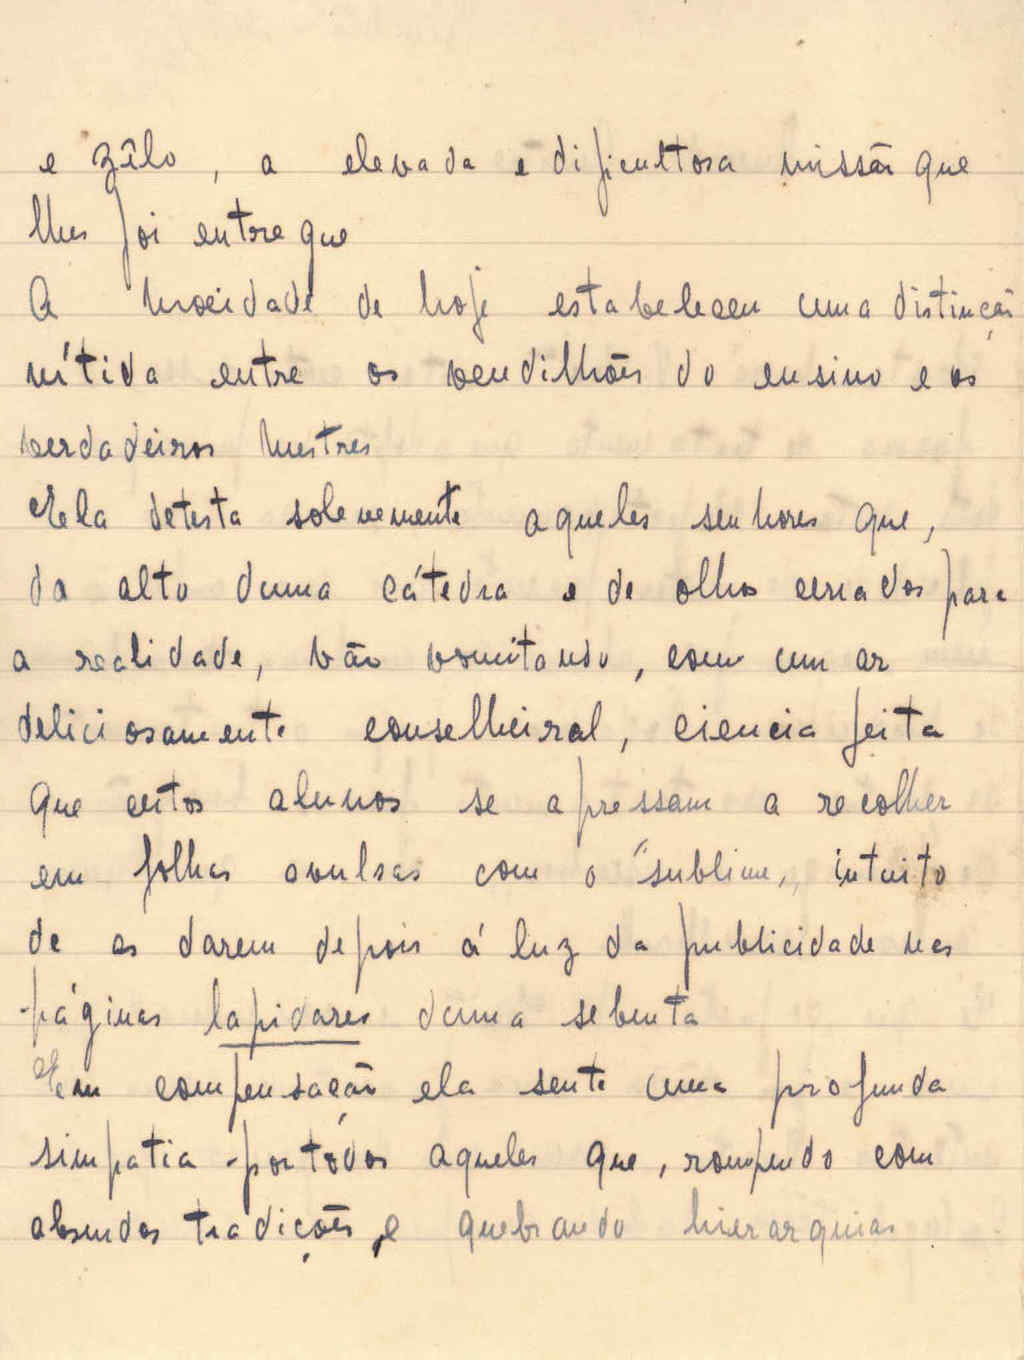 e zêlo, a elevada e dificultosa missão que
lhes foi entregue
A mocidade de hoje estabeleceu uma distinção
nítida entre os vendilhões do ensino e os
verdadeiros Mestres
Ela detesta solenemente aqueles senhores que,
do alto duma cátedra e de olhos cerrados para
a realidade, vão vomitando, com um ar
deliciosamente conselheiral, ciencia feita
que certos alunos se apressam a recolher
em folhas avulsas com o "sublime" intuito
de as darem depois á luz da publicidade nas
páginas lapidares duma sebenta
Em compensação ela sente uma profunda
simpatia por todos aqueles que, rompendo com
absurdas tradições, e quebrando hierarquias